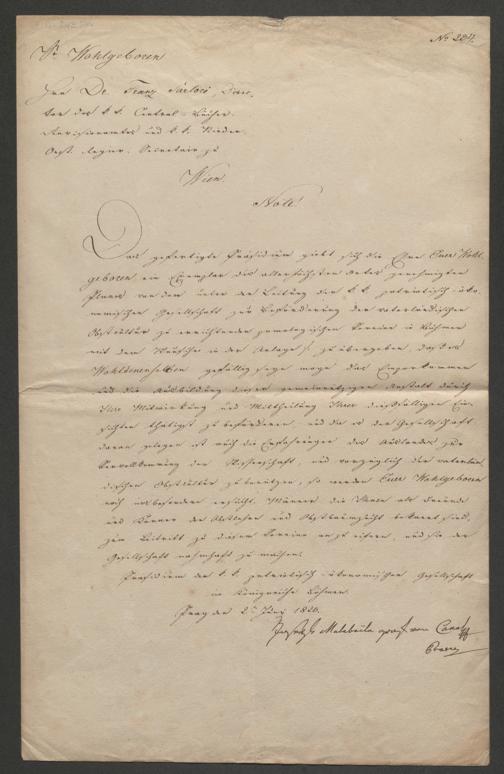 No 224.
Sr Wohlgeboren
Herrn Dr. Franz Sartori, Direc-
tor des k. k. Central-Bücher-
Revisionsamtes und k. k. Nieder-
Oest. Regier. Secretair zu
Wien
Note!
Das gefertigte Präsidium giebt sich die Ehre Euer Wohl-
geboren ein Exemplar des allerhöchsten Ortes genehmigten
Planes von dem unter der Leitung der k. k. patriotisch-öko-
nomischen Gesellschaft zur Beförderung der vaterländischen
Obstkultur zu errichtenden pomologischen Vereins in Böhmen
mit dem Wunsche in der Anlage zu übergeben, daß es
Wohldenenselben gefällig seyn möge das Emporkommen
und die Ausbildung dieser gemeinnützigen Anstalt durch
Ihre Mitwirkung und Mittheilung Ihrer dießfälligen Ein-
sichten thätigst zu befördern, und da es der Gesellschaft
daran gelegen ist auch die Erfahrungen des Auslandes zur
Vervollkommnung der Wissenschaft, und vorzüglich der vaterlän-
dischen Obstkultur zu benützen, so werden Euer Wohlgeboren
noch insbesondere ersucht, Männer die Ihnen als Freunde
und Kenner der Obstlehre und Obstbaumzucht bekannt sind,
zum Beitritt zu diesem Vereine und sie der
Gesellschaft nahmhaft zu machen.
Präsidium der k. k. patriotisch-ökonomischen Gesellschaft
im Königreiche Böhmen.
Prag den 2 Juny 1820.
Joseph Malabaila Graf von Canal